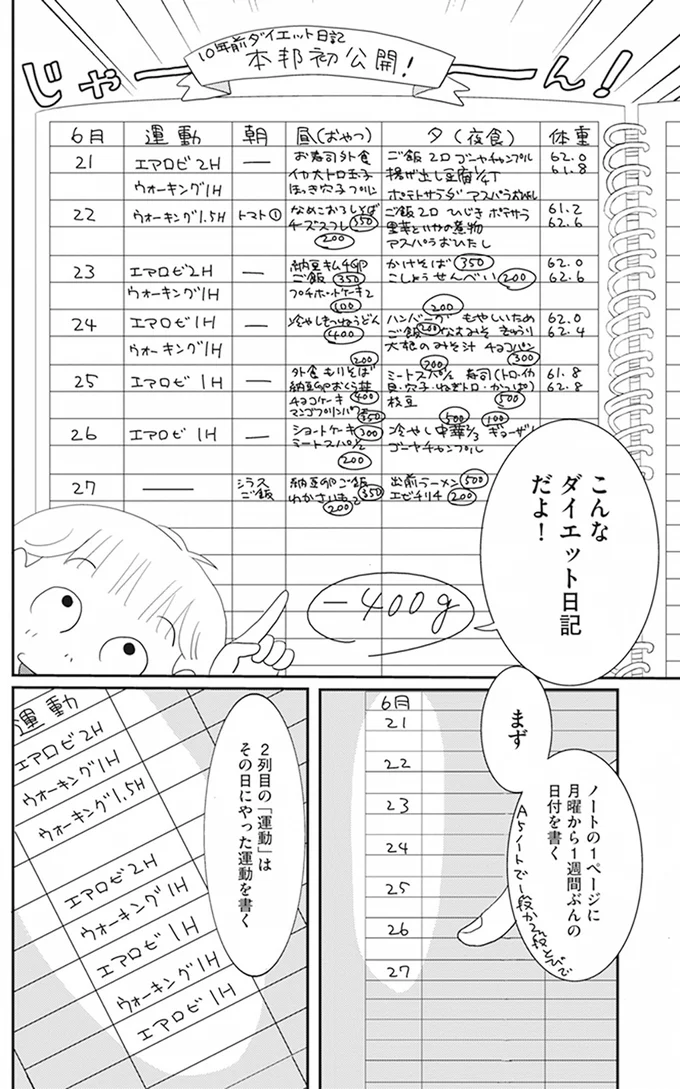 10年前ダイエット日記
本邦初公開!
じゃーん!
6月 運動 朝 昼(おやつ) 夕(夜食) 体重
21 エアロビ2H — お寿司外食 ご飯2口 ゴーヤチャンプル 62.0
イカ大トロ玉子 揚げ出し豆腐1/4丁 61.8
ウォーキング1H ほっき穴子 ポテトサラダ アスパラ
22 ウォーキング1.5H トマト① なめこおろしそば ご飯2口 ひじき ポテサラ 61.2
チーズスフレ 350 里芋といかの煮物 62.6
200 アスパラおひたし
23 エアロビ2H — 納豆キムチ卵 かけそば 350 62.0
ウォーキング1H ご飯 350 こしょうせんべい 200 62.6
プチホットケーキ2
100
24 エアロビ1H — 冷やしきつねうどん ハンバーグ 200 もやしいため 62.0
400 ご飯 200 なすみそ きゅうり 62.4
ウォーキング1H 大根のみそ汁 チョコパン
200 200 300
25 エアロビ1H — 外食もりそば ミートスパ1/2 寿司(トロ・イカ 61.8
納豆卵おくら丼 貝・穴子・ねぎトロ・かっぱ) 62.8
チョコケーキ 400 枝豆 500
マンゴプリンパフェ 350 500 100
26 エアロビ1H — ショートケーキ 300 冷やし中華2/3 ギョーザ
ミートスパ1/2 ゴーヤチャンプル
200
27 — シラスご飯 納豆卵ご飯 出前ラーメン 500
わかさいも2 350 エビチリ4 200
200
−400g
こんな
ダイエット日記
だよ!
まず
ノートの1ページに
月曜から1週間ぶんの
日付を書く
A5ノートで1段から2段とびで
6月
21
22
23
24
25
26
27
2列目の「運動」は
その日にやった運動を書く
運動
エアロビ2H
ウォーキング1H
ウォーキング1.5H
エアロビ2H
ウォーキング1H
エアロビ1H
ウォーキング1H
エアロビ1H